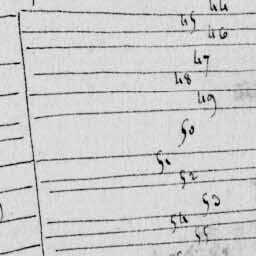 44
45
46
47
48
49
50
51
52
53
54
55